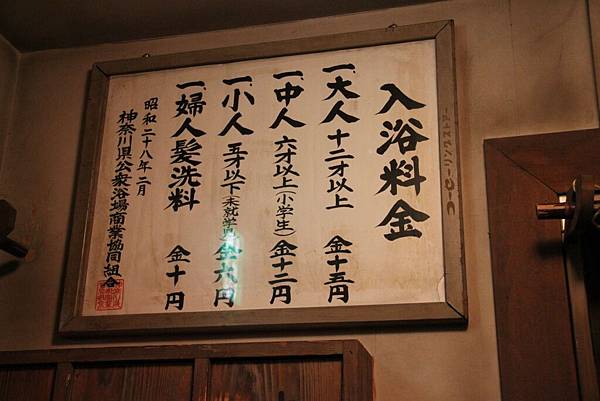 入浴料金
一、大人 十二才以上 金十五円
一、中人 六才以上(小学生) 金十二円
一、小人 五才以下(未就学児) 金六円
一、婦人髪洗料 金十円
昭和二十八年二月
神奈川県公衆浴場商業協同組合